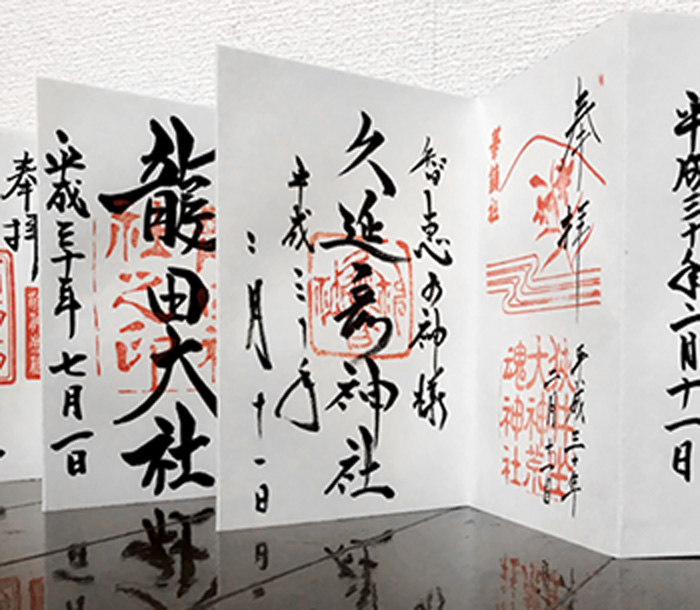 平成三十年二月十一日
奉拝
狭井坐
大神荒
魂神社
平成三十年
二月十一日
智恵の神様
久延彦神社
平成三十年
二月十一日
龍田大社
平成三十年七月一日
奉拝